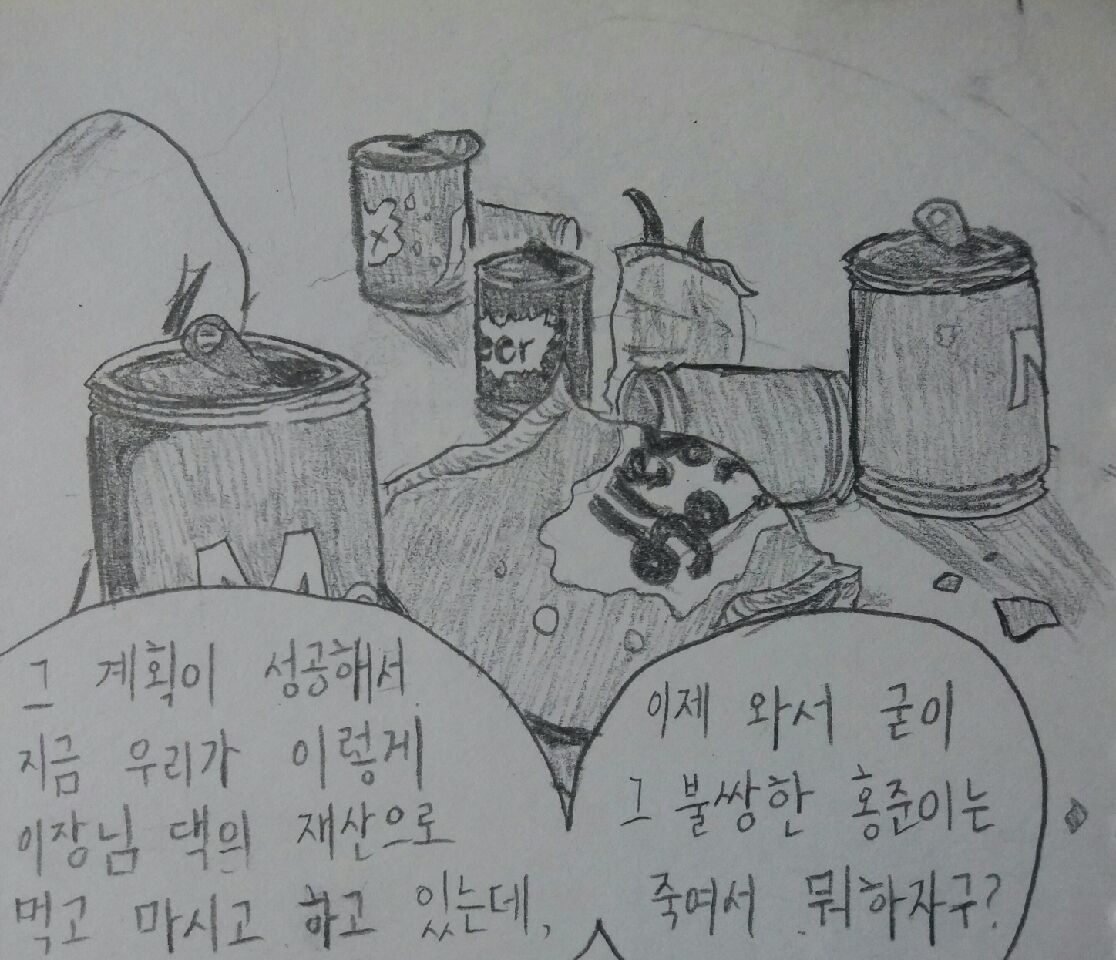 eer
그 계획이 성공해서
지금 우리가 이렇게
이장님 댁의 재산으로
먹고 마시고 하고 있는데,
이제 와서 굳이
그 불쌍한 홍준이는
죽여서 뭐하자구?